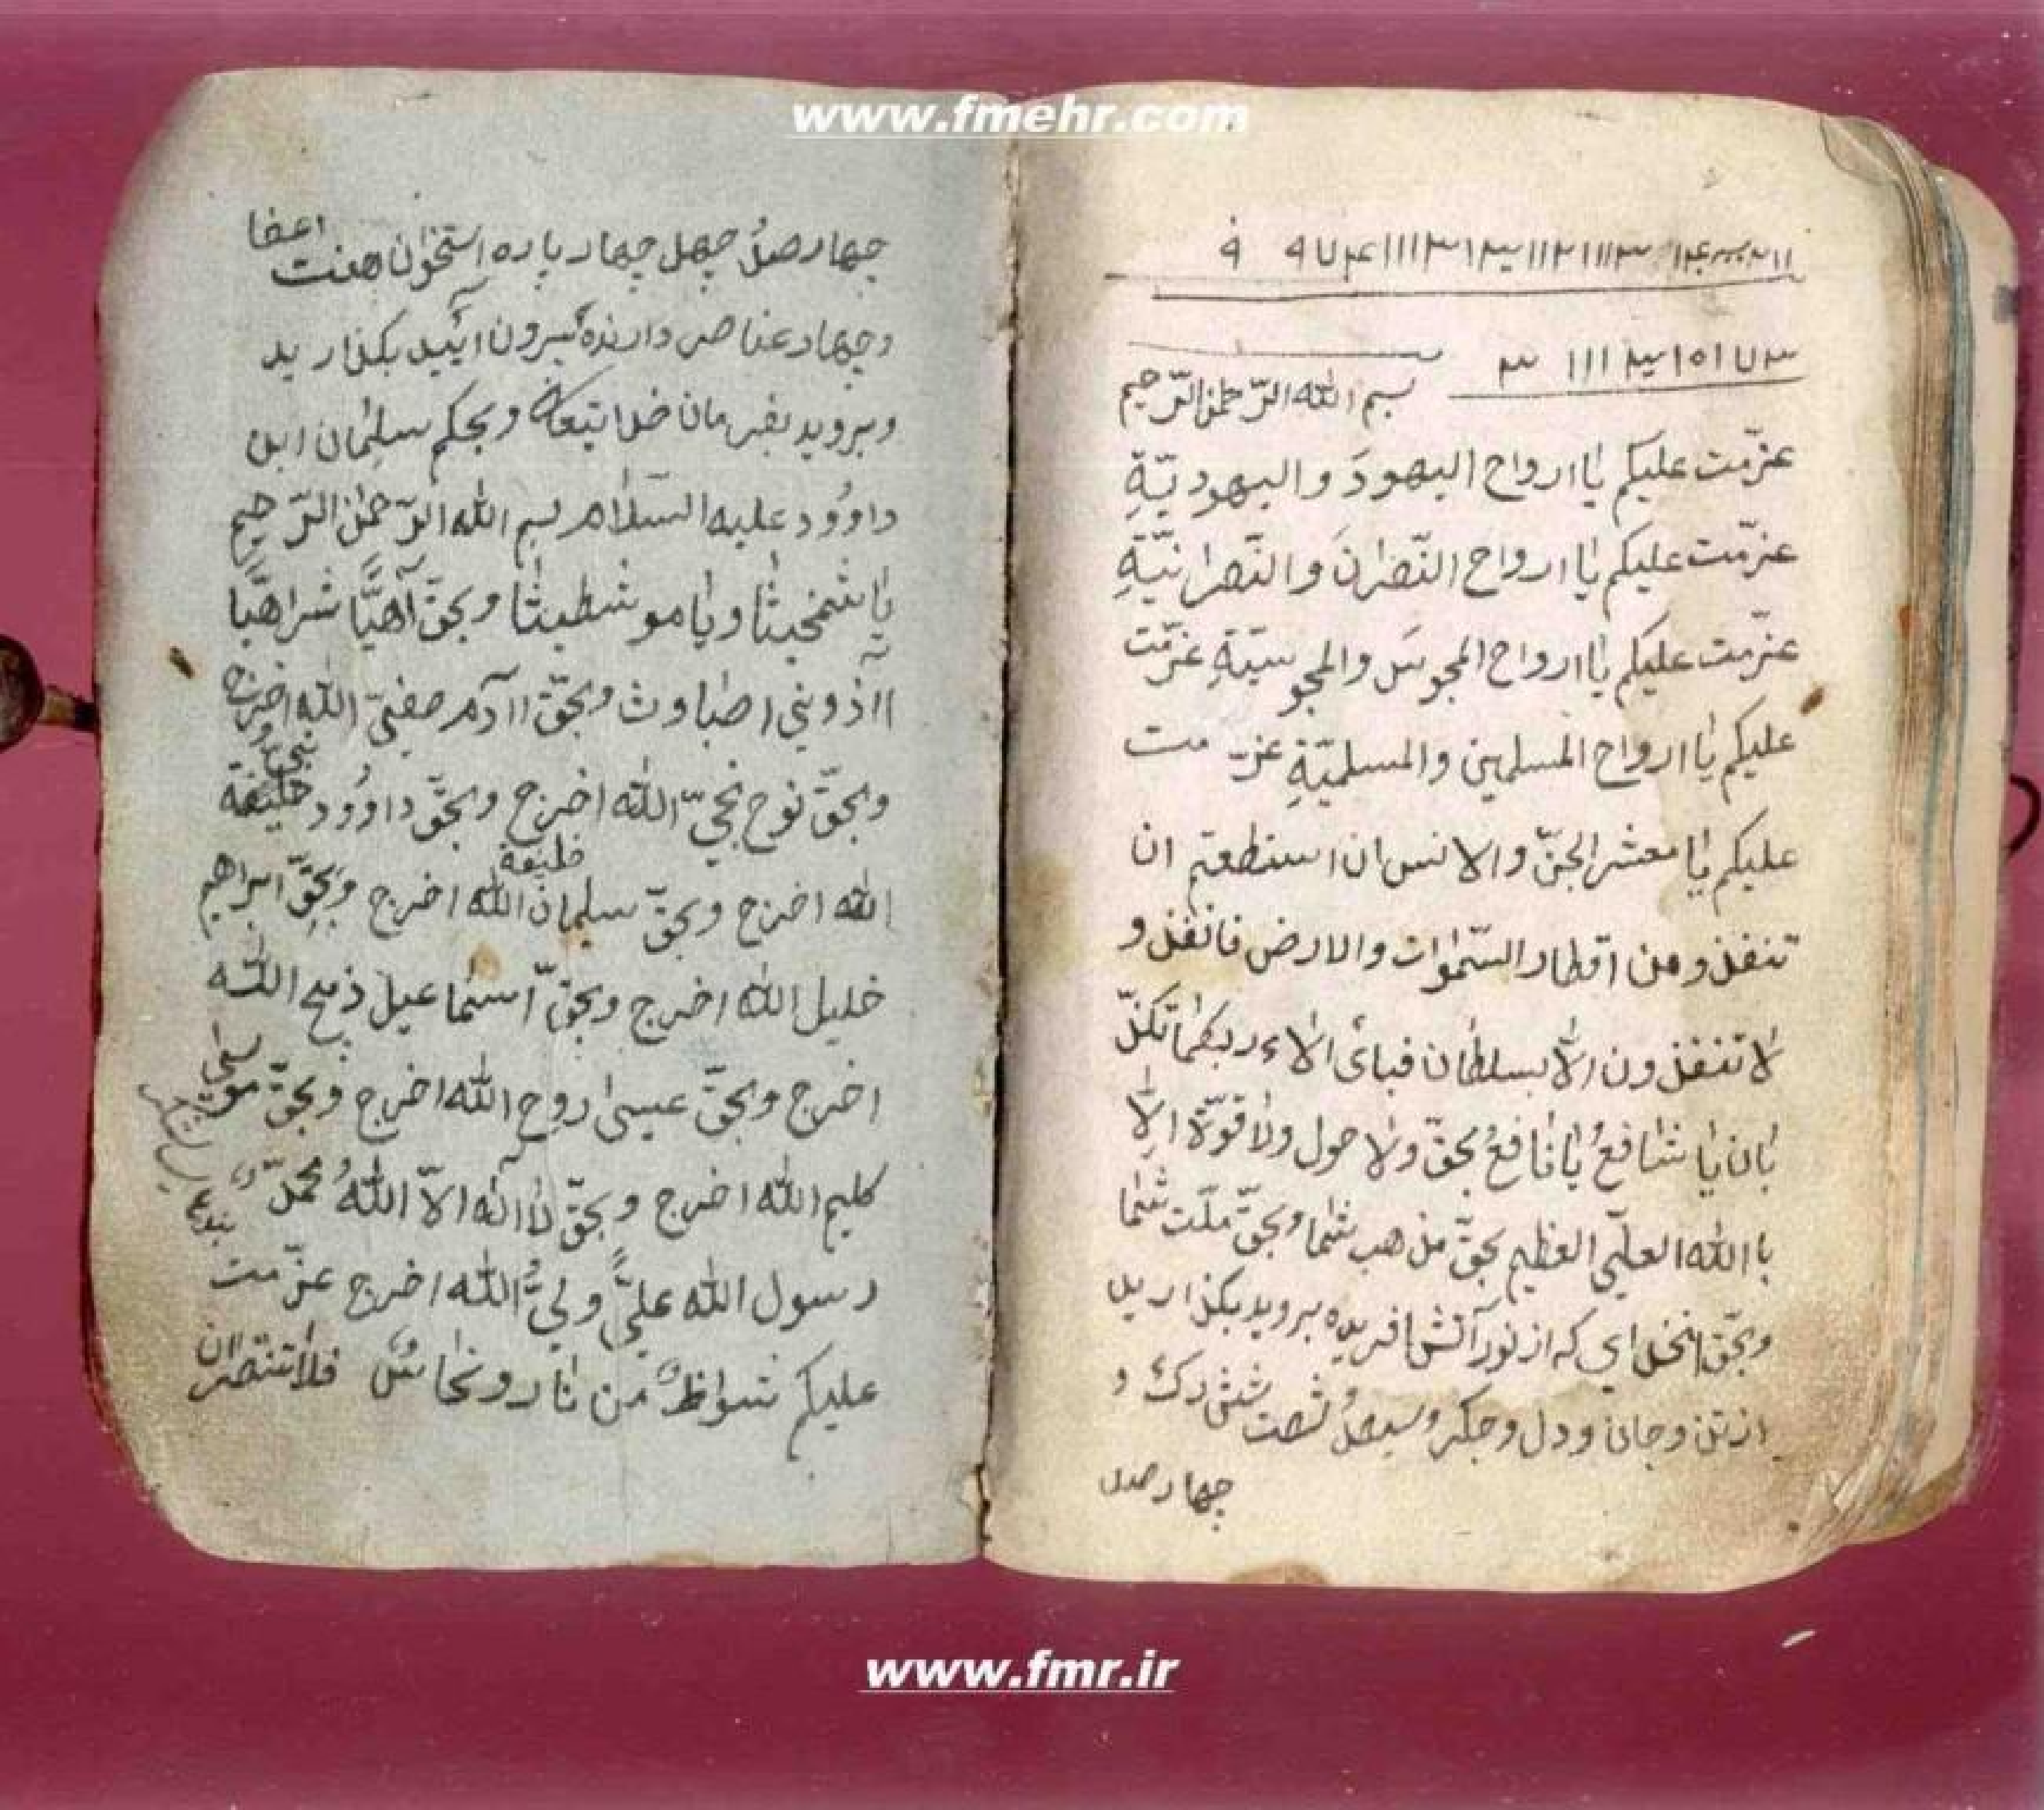 www.fmehr.com
بسم الله الرّحمن الرّحيم
عزّمت عليكم يا ارواح اليهودَ و اليهوديّةِ
عزّمت عليكم يا ارواح النّصرانَ و النّصرانيّةِ
عزّمت عليكم يا ارواح المجوسَ والمجوسيّةِ عزّمت
عليكم يا ارواح المسلمين والمسلميّةِ عزّمت
عليكم يا معشر الجنّ والانس ان استطعتم ان
تنفذو من اقطار السّموات والارض فانفذو
لا تنفذون الّا بسلطان فباى الاء ربكما تكذّ
بان يا شافعُ يا نافعُ بحقّ ولا حول ولا قوّة الّا
باالله العلّي العظيم بحقّ مذهب شما و بحقّ ملّت شما
و بحّق انخداي که از نور آتش افريده برويد بکذاريد
از تن و جان و دل و جکر و سيصدُ شصت شش رک و
چهارصد
چهارصدُ چهل چهار پاره استخوان هفت اعضا
و چهار عناصر دارنده بيرون آئيد بکذاريد
و برويد بفرمان خدا تيعالي و بحکم سليمان ابل
داوُود عليه السّلام بسم الله الرّحمن الرّحيم
يا شمخيثا و يا موشطيثا و بحقّ آهيّاً شراهيّاً
آذوني اصباوث و بحّق اآدم صفيّ الله اخرج
و بحقّ نوح نجيّ الله اخرج و بحقّ داوُود خليفة
الله اخرج و بحقّ سليمان خليفة الله اخرج و بحقّ ابراهيم
خليل الله اخرج و بحقّ اسماعيل ذبيح الله
اخرج و بحقّ عيسى روح الله اخرج و بحقّ موسى
كليم الله اخرج و بحقّ لا اله الّا اللهُ محمّد
رسول الله عليّاً وليُّ الله اخرج عزّمت
عليكم شواظٌ من نار و نحاسٌ فلا تنتصران
www.fmr.ir